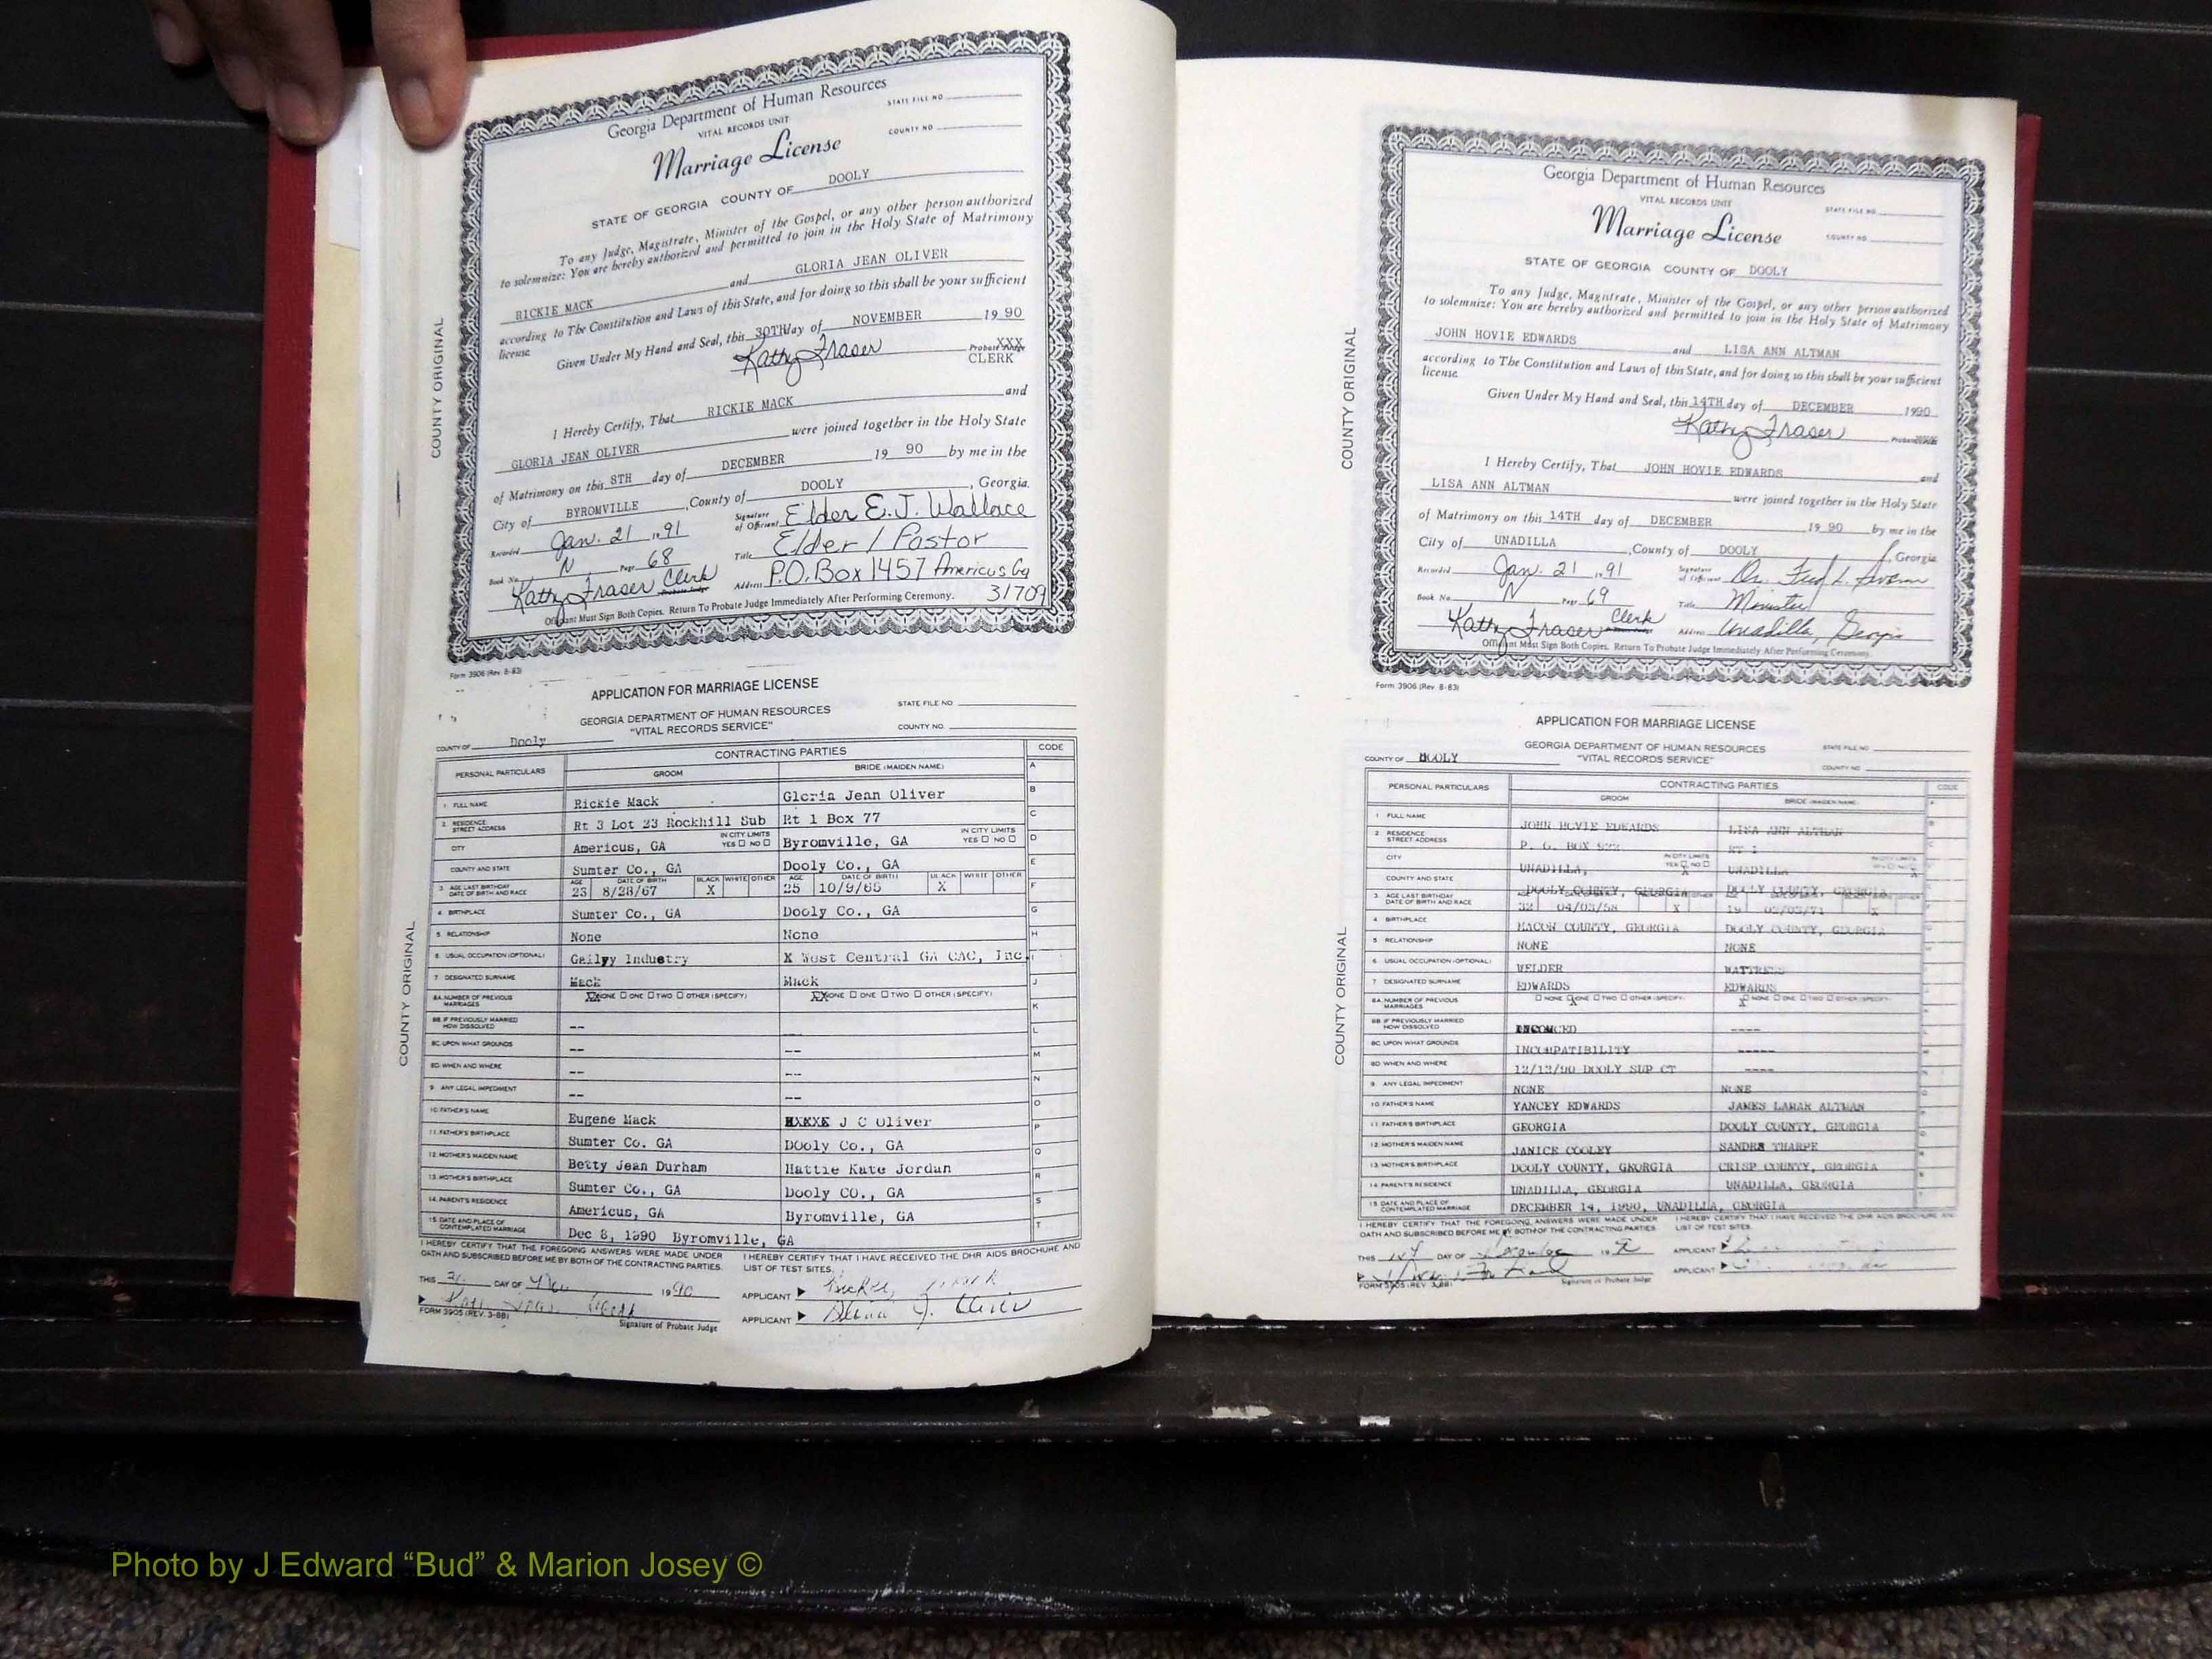 Georgia Department of Human Resources
VITAL RECORDS UNIT
STATE FILE NO
COUNTY NO
Marriage License
STATE OF GEORGIA COUNTY OF DOOLY
To any Judge, Magistrate, Minister of the Gospel, or any other person authorized
to solemnize: You are hereby authorized and permitted to join in the Holy State of Matrimony
RICKIE MACK and GLORIA JEAN OLIVER
according to The Constitution and Laws of this State, and for doing so this shall be your sufficient
license
Given Under My Hand and Seal, this 30TH day of NOVEMBER 19 90
Kathy Fraser XXX
Probate Judge
CLERK
I Hereby Certify, That RICKIE MACK and
GLORIA JEAN OLIVER were joined together in the Holy State
of Matrimony on this 8TH day of DECEMBER 19 90 by me in the
City of BYROMVILLE, County of DOOLY, Georgia.
Recorded Jan. 21, 1991 Signature of Officiant Elder E.J. Wallace
Book No. N Page 68 Title Elder / Pastor
Kathy Fraser Clerk Probate Judge Address P.O. Box 1457 Americus Ga
31709
Officiant Must Sign Both Copies. Return To Probate Judge Immediately After Performing Ceremony.
COUNTY ORIGINAL
Form 3906 (Rev. 8-83)
APPLICATION FOR MARRIAGE LICENSE
GEORGIA DEPARTMENT OF HUMAN RESOURCES
"VITAL RECORDS SERVICE"
STATE FILE NO
COUNTY NO
COUNTY OF Dooly
CONTRACTING PARTIES CODE
PERSONAL PARTICULARS GROOM BRIDE (MAIDEN NAME)
1 FULL NAME Rickie Mack Gloria Jean Oliver
2. RESIDENCE STREET ADDRESS Rt 3 Lot 23 Rockhill Sub Rt 1 Box 77
CITY Americus, GA IN CITY LIMITS YES NO Byromville, GA IN CITY LIMITS YES NO
COUNTY AND STATE Sumter Co., GA Dooly Co., GA
3. AGE LAST BIRTHDAY DATE OF BIRTH AND RACE AGE 23 DATE OF BIRTH 8/28/67 BLACK X WHITE OTHER AGE 25 DATE OF BIRTH 10/9/65 BLACK X WHITE OTHER
4. BIRTHPLACE Sumter Co., GA Dooly Co., GA
5. RELATIONSHIP None None
6. USUAL OCCUPATION (OPTIONAL) Industry X West Central GA CAC, Inc.
7 DESIGNATED SURNAME Mack Mack
8A. NUMBER OF PREVIOUS MARRIAGES NONE ONE TWO OTHER (SPECIFY) NONE ONE TWO OTHER (SPECIFY)
8B. IF PREVIOUSLY MARRIED HOW DISSOLVED --
8C. UPON WHAT GROUNDS -- --
8D. WHEN AND WHERE -- --
9 ANY LEGAL IMPEDIMENT -- --
10. FATHER'S NAME Eugene Mack J C Oliver
11. FATHER'S BIRTHPLACE Sumter Co. GA Dooly Co., GA
12. MOTHER'S MAIDEN NAME Betty Jean Durham Hattie Kate Jordan
13. MOTHER'S BIRTHPLACE Sumter Co., GA Dooly CO., GA
14. PARENT'S RESIDENCE Americus, GA Byromville, GA
15. DATE AND PLACE OF CONTEMPLATED MARRIAGE Dec 8, 1990 Byromville, GA
A
B
C
D
E
F
G
H
I
J
K
L
M
N
O
P
Q
R
S
T
I HEREBY CERTIFY THAT THE FOREGOING ANSWERS WERE MADE UNDER
OATH AND SUBSCRIBED BEFORE ME BY BOTH OF THE CONTRACTING PARTIES.
I HEREBY CERTIFY THAT I HAVE RECEIVED THE DHR AIDS BROCHURE AND
LIST OF TEST SITES.
THIS DAY OF 1990
APPLICANT
APPLICANT
FORM 3905 (REV. 3-88) Signature of Probate Judge
COUNTY ORIGINAL
Georgia Department of Human Resources
VITAL RECORDS UNIT
STATE FILE NO.
COUNTY NO.
Marriage License
STATE OF GEORGIA COUNTY OF DOOLY
To any Judge, Magistrate, Minister of the Gospel, or any other person authorized
to solemnize: You are hereby authorized and permitted to join in the Holy State of Matrimony
JOHN HOVIE EDWARDS and LISA ANN ALTMAN
according to The Constitution and Laws of this State, and for doing so this shall be your sufficient
license.
Given Under My Hand and Seal, this 14TH day of DECEMBER 1990
Kathy Fraser
I Hereby Certify, That JOHN HOVIE EDWARDS and
LISA ANN ALTMAN were joined together in the Holy State
of Matrimony on this 14TH day of DECEMBER 19 90 by me in the
City of UNADILLA, County of DOOLY, Georgia
Recorded Jan. 21, 1991 Signature of Officiant Dr.
Book No. N Page 69 Title Minister
Kathy Fraser Clerk Address Unadilla, Georgia
Officiant Must Sign Both Copies. Return To Probate Judge Immediately After Performing Ceremony.
COUNTY ORIGINAL
Form 3906 (Rev. 8-83)
APPLICATION FOR MARRIAGE LICENSE
GEORGIA DEPARTMENT OF HUMAN RESOURCES
"VITAL RECORDS SERVICE"
STATE FILE NO
COUNTY NO
COUNTY OF DOOLY
CONTRACTING PARTIES CODE
PERSONAL PARTICULARS GROOM BRIDE (MAIDEN NAME)
1 FULL NAME JOHN HOVIE EDWARDS LISA ANN ALTMAN
2 RESIDENCE STREET ADDRESS P. O. BOX RT 1
CITY UNADILLA, IN CITY LIMITS YES NO X UNADILLA X
COUNTY AND STATE DOOLY COUNTY, GEORGIA DOOLY COUNTY, GEORGIA
3 AGE LAST BIRTHDAY DATE OF BIRTH AND RACE 32 04/03/58 X 19 X
4 BIRTHPLACE MACON COUNTY, GEORGIA DOOLY COUNTY, GEORGIA
5 RELATIONSHIP NONE NONE
6. USUAL OCCUPATION (OPTIONAL) WELDER
7 DESIGNATED SURNAME EDWARDS EDWARDS
8A. NUMBER OF PREVIOUS MARRIAGES NONE ONE TWO OTHER (SPECIFY) X NONE ONE TWO OTHER (SPECIFY)
8B. IF PREVIOUSLY MARRIED HOW DISSOLVED ----
8C. UPON WHAT GROUNDS INCOMPATIBILITY -----
8D. WHEN AND WHERE 12/12/90 DOOLY SUP CT ----
9. ANY LEGAL IMPEDIMENT NONE NONE
10. FATHER'S NAME YANCEY EDWARDS JAMES LAMAR ALTMAN
11. FATHER'S BIRTHPLACE GEORGIA DOOLY COUNTY, GEORGIA
12. MOTHER'S MAIDEN NAME JANICE COOLEY SANDRA THARPE
13. MOTHER'S BIRTHPLACE DOOLY COUNTY, GEORGIA CRISP COUNTY, GEORGIA
14. PARENT'S RESIDENCE UNADILLA, GEORGIA UNADILLA, GEORGIA
15. DATE AND PLACE OF CONTEMPLATED MARRIAGE DECEMBER 14, 1990, UNADILLA, GEORGIA
I HEREBY CERTIFY THAT THE FOREGOING ANSWERS WERE MADE UNDER
OATH AND SUBSCRIBED BEFORE ME BY BOTH OF THE CONTRACTING PARTIES.
I HEREBY CERTIFY THAT I HAVE RECEIVED THE DHR AIDS BROCHURE AND
LIST OF TEST SITES.
THIS DAY OF
APPLICANT
APPLICANT
FORM 3905 (REV. 3-88) Signature of Probate Judge
COUNTY ORIGINAL
Photo by J Edward “Bud” & Marion Josey ©